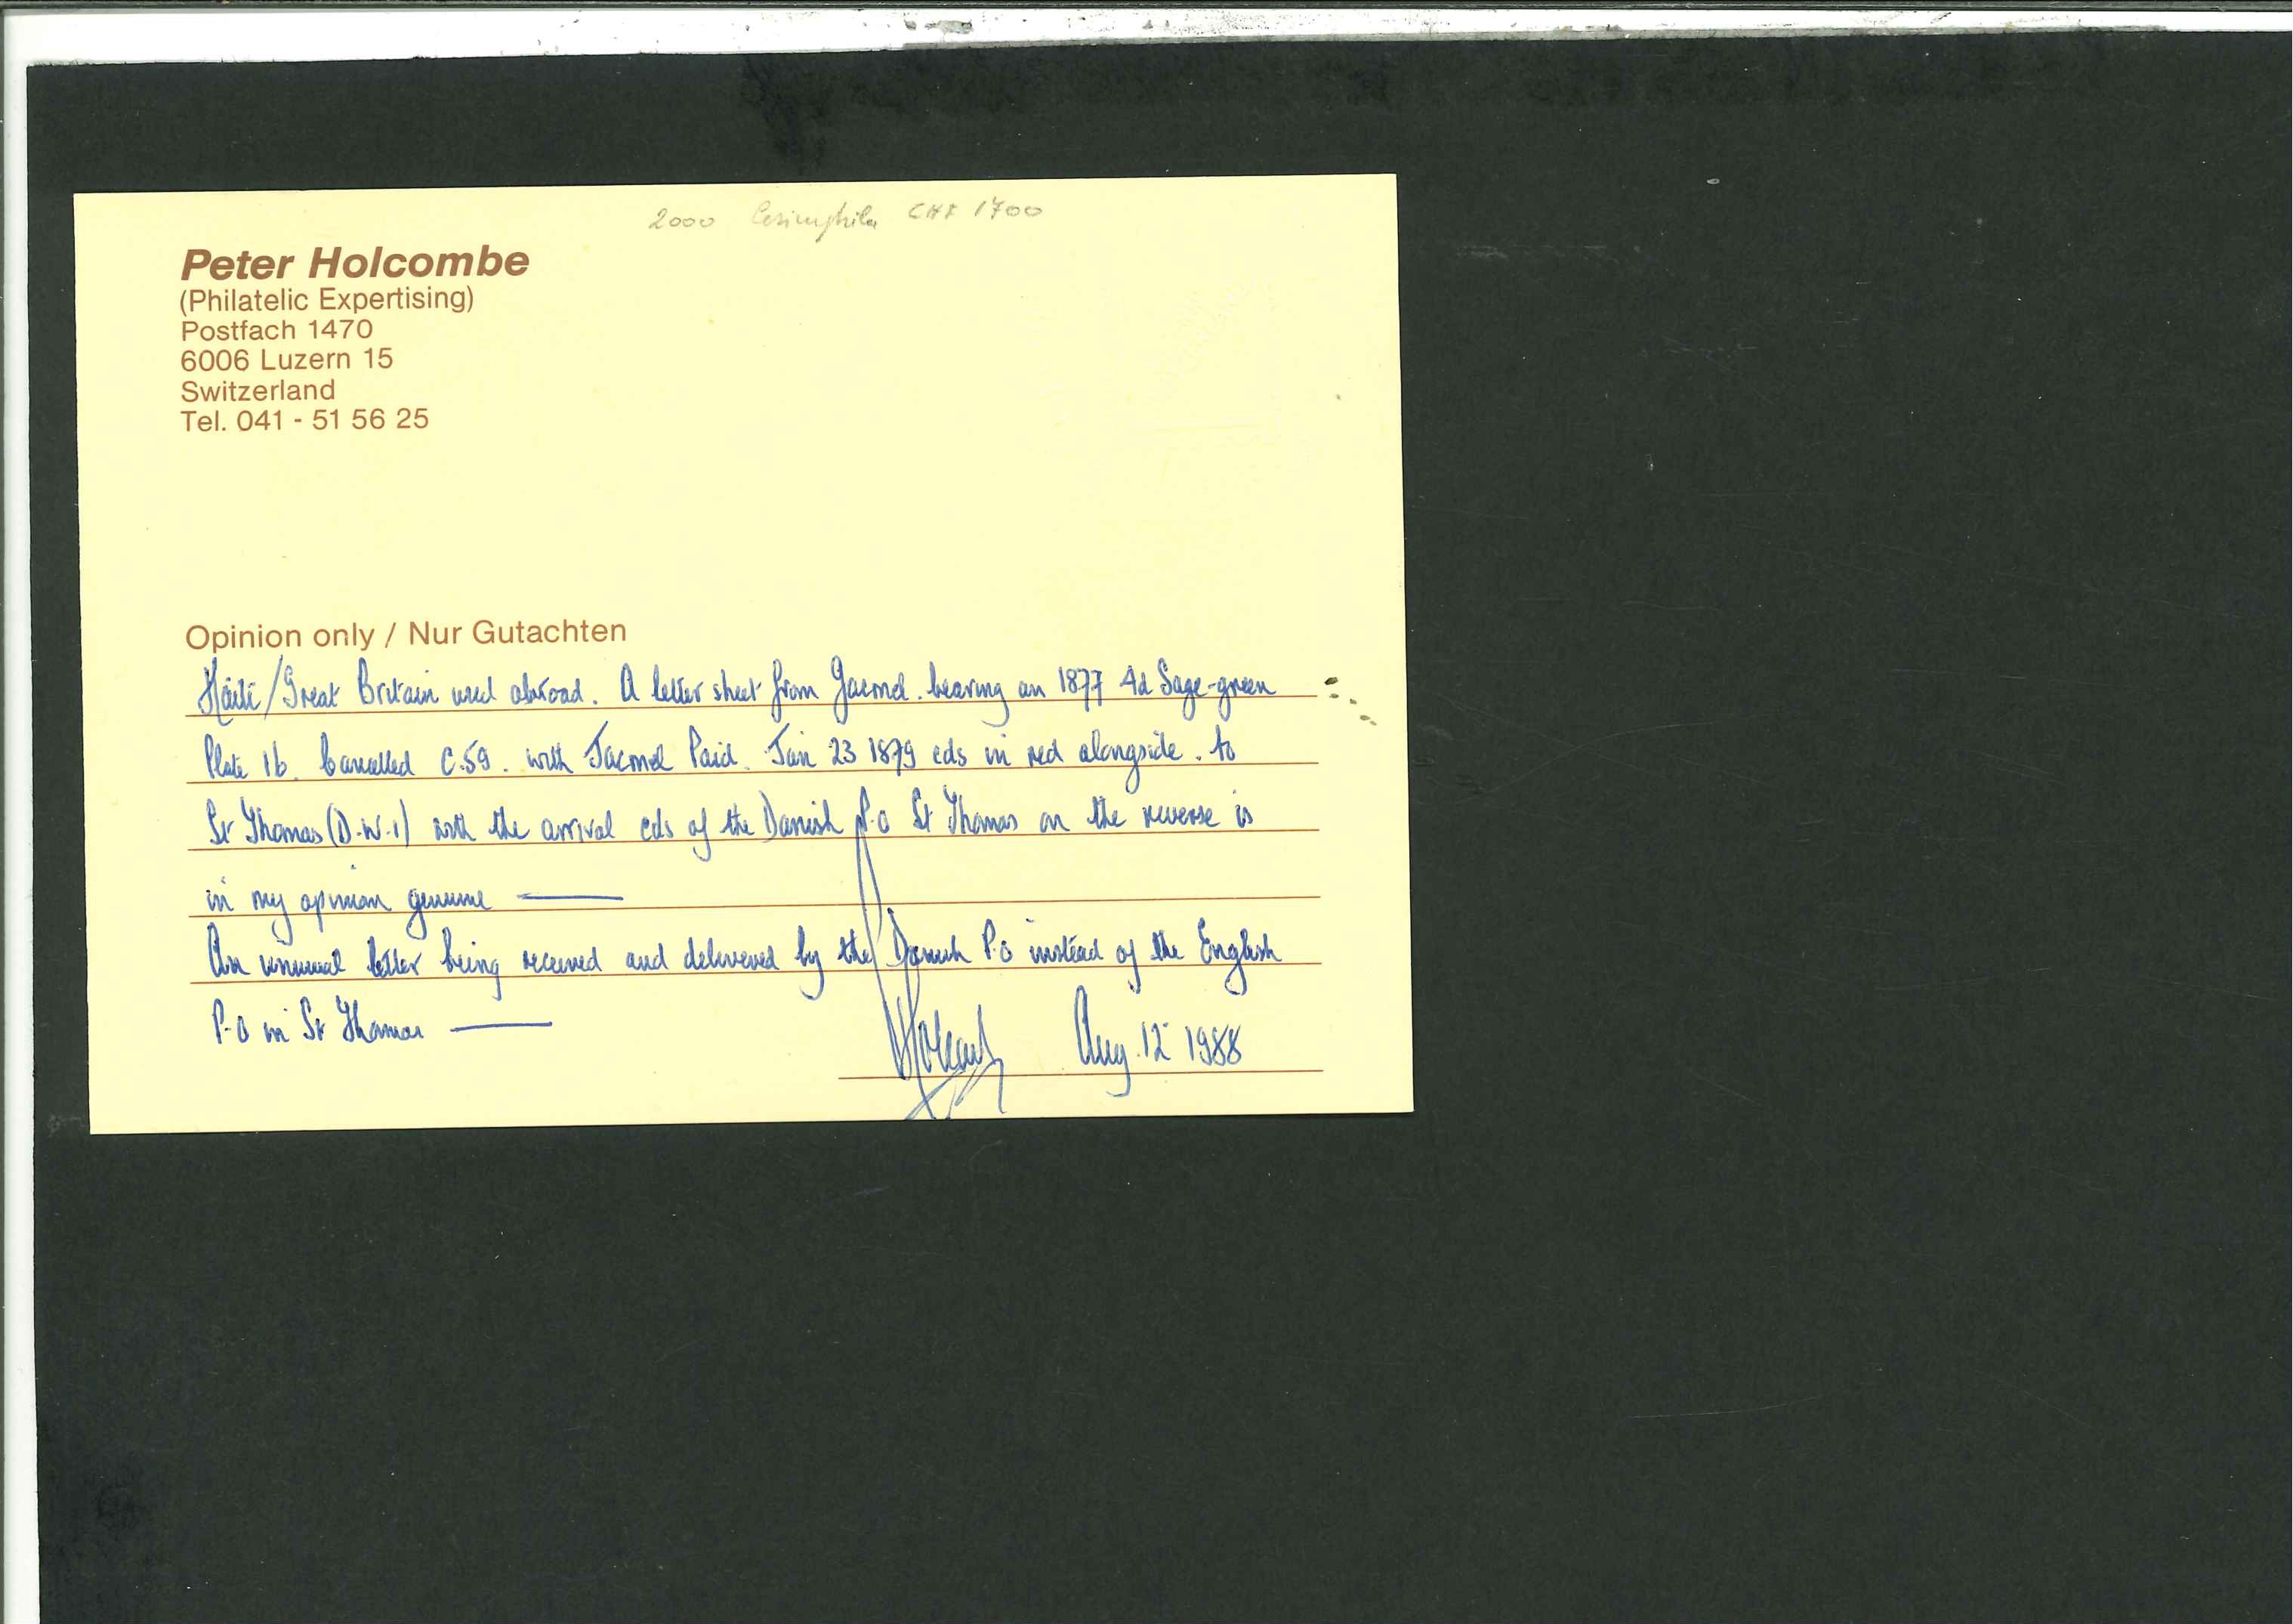 2000 Corinphila CHF 1700
Peter Holcombe
(Philatelic Expertising)
Postfach 1470
6006 Luzern 15
Switzerland
Tel. 041 - 51 56 25
Opinion only / Nur Gutachten
Haiti/Great Britain used abroad. A letter sheet from Jacmel. bearing an 1877 4d Sage-green
Plate 16. Cancelled C.59. with Jacmel Paid. Jan 23 1879 cds in red alongside. to
St Thomas (D.W.I) with the arrival cds of the Danish P.O St Thomas on the reverse is
in my opinion genuine ———
An unusual letter being received and delivered by the Danish P.O instead of the English
P.O in St Thomas ———
Aug. 12 1988